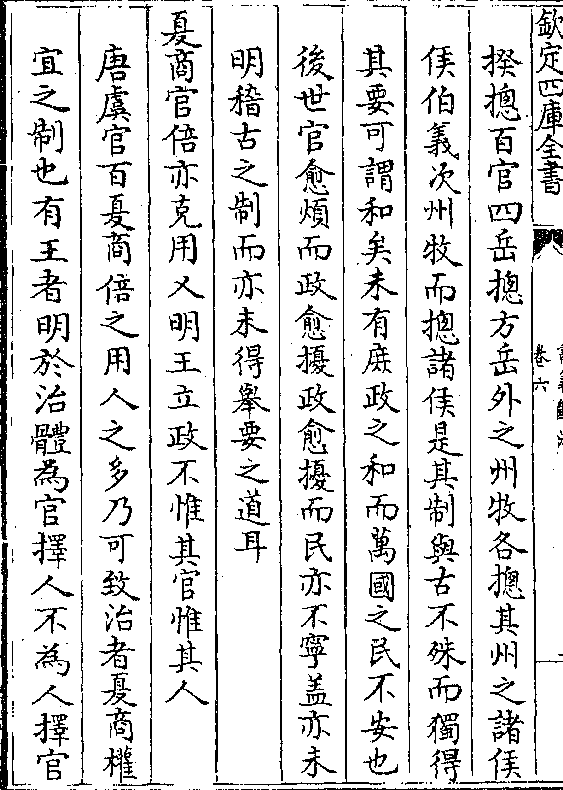 欽定四庫全書
卷六
揆揔百官四岳揔方岳外之州牧各揔其州之諸侯
侯伯義次州牧而揔諸侯是其制與古不殊而獨得
其要可謂和矣未有庶政之和而萬國之民不安也
後世官愈煩而政愈擾政愈擾而民亦不寧盖亦未
明稽古之制而亦未得舉要之道耳
夏商官倍亦克用乂明王立政不惟其官惟其人
唐虞官百夏商倍之用人之多乃可致治者夏商權
宜之制也有王者明於治體為官擇人不為人擇官